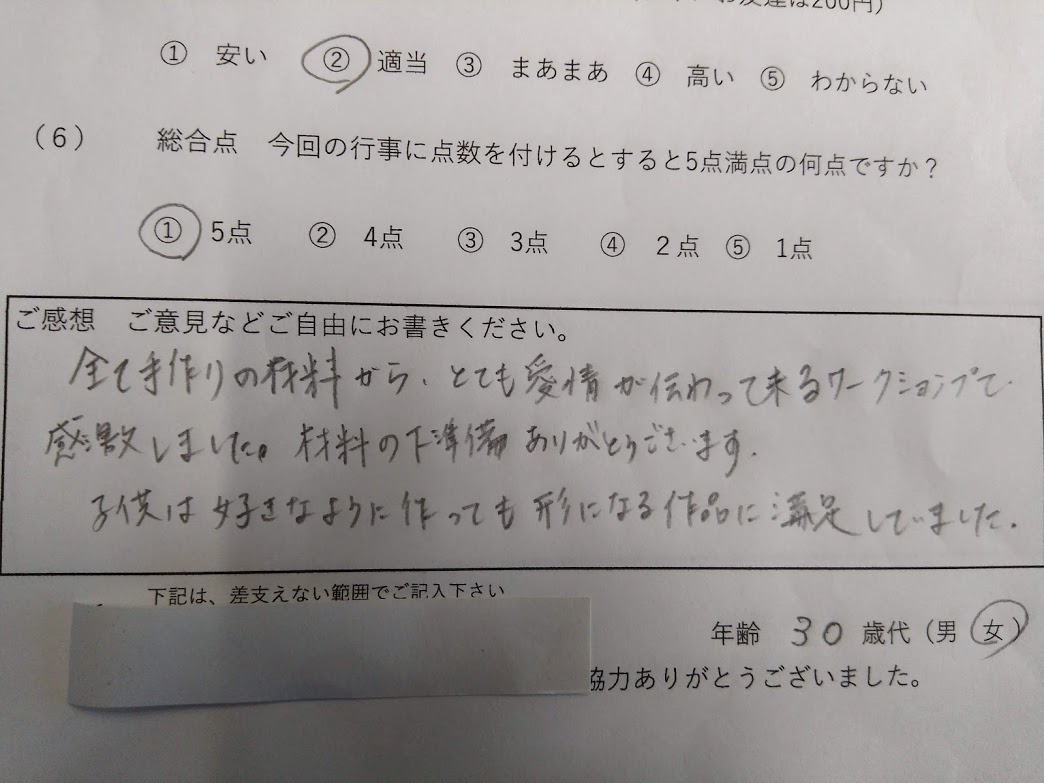 お友達は200円)
① 安い ② 適当 ③ まあまあ ④ 高い ⑤ わからない
(6) 総合点 今回の行事に点数を付けるとすると5点満点の何点ですか?
① 5点 ② 4点 ③ 3点 ④ 2点 ⑤ 1点
ご感想 ご意見などご自由にお書きください。
全て手作りの材料から、とても愛情が伝わって来るワークショップで
感激しました。材料の下準備ありがとうございます。
子供は好きなように作っても形になる作品に満足していました。
下記は、差支えない範囲でご記入下さい
年齢 30 歳代(男 女)
協力ありがとうございました。